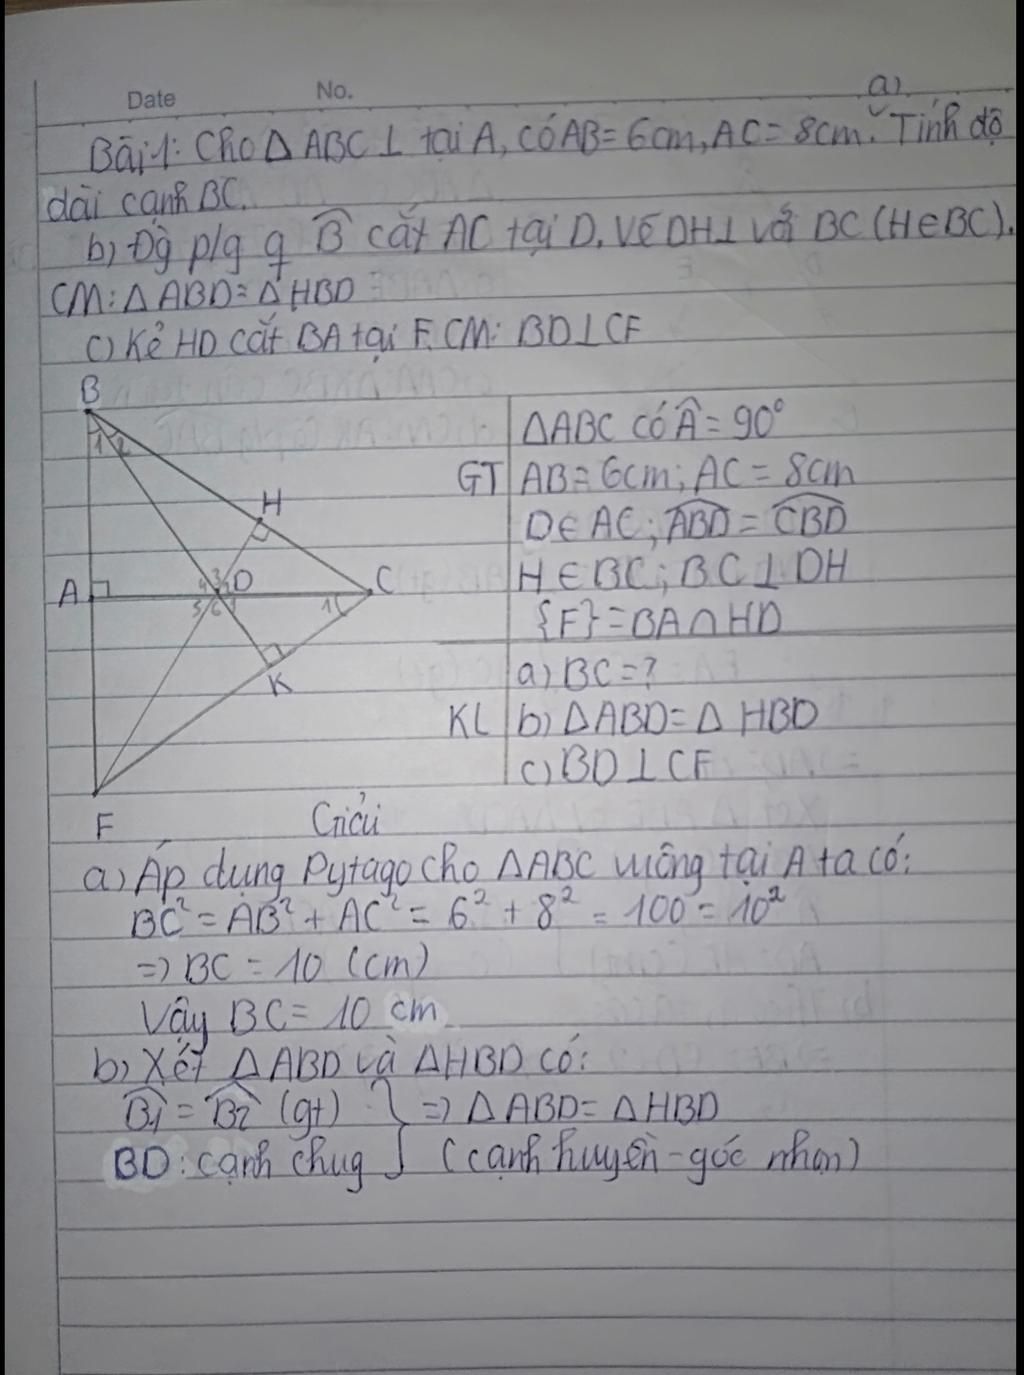 Date No.
a)
Bài 1: Cho △ ABC ⊥ tại A, có AB = 6cm, AC = 8cm. Tính độ
dài cạnh BC.
b) Đg p/g g B̂ cắt AC tại D. Vẽ DH ⊥ với BC (H ∈ BC).
CM: △ ABD = △ HBD
c) Kẻ HD cắt BA tại F. CM: BD ⊥ CF
B
1 2
H
A
4 3 2 D
5 6 1
1
C
K
F
△ABC có Â = 90°
GT AB = 6cm; AC = 8cm
D ∈ AC; ABD = CBD
H ∈ BC; BC ⊥ DH
{F} = BA ∩ HD
a) BC = ?
KL b) △ABD = △ HBD
c) BD ⊥ CF
Giải
a) Áp dụng Pytago cho △ABC vuông tại A ta có:
BC² = AB² + AC² = 6² + 8² = 100 = 10²
=> BC = 10 (cm)
Vậy BC = 10 cm
b) Xét △ABD và △HBD có:
B1 = B2 (gt) } => △ABD = △HBD
BD: cạnh chug (cạnh huyền - góc nhọn)